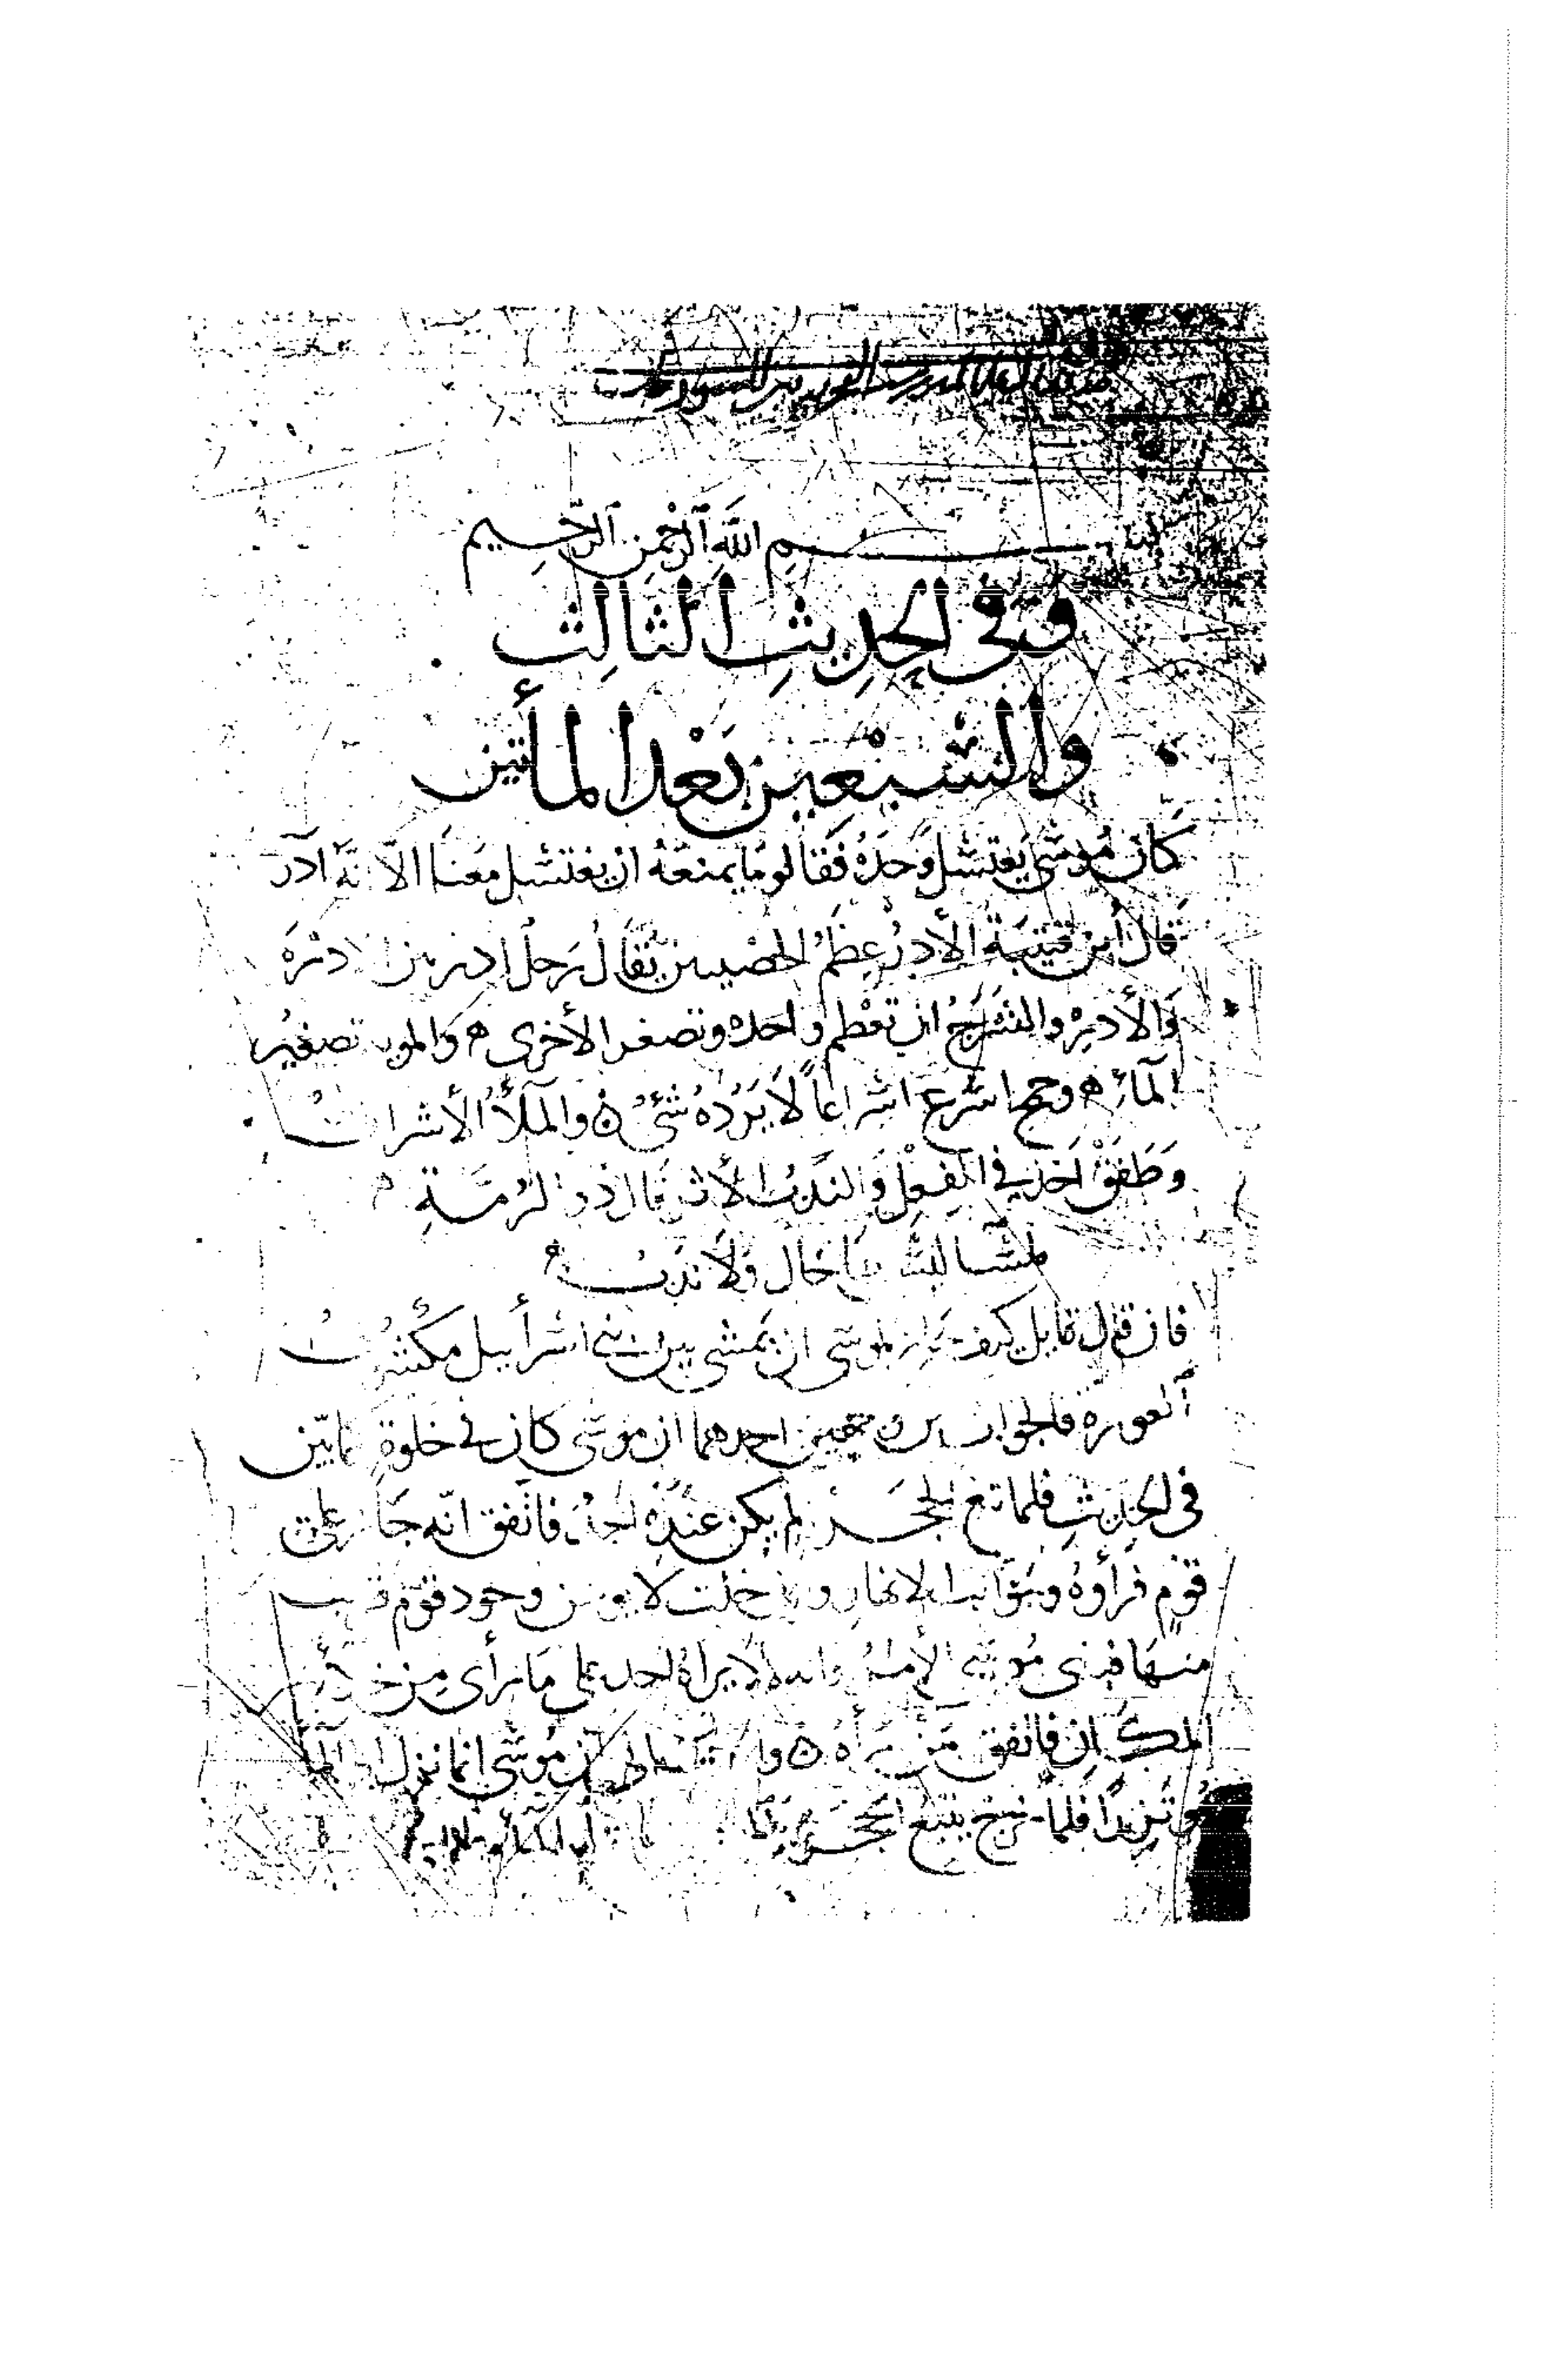 بسم الله الرحمن الرحيم
وفي الحديث الثالث
والسبعين بعد المأتين
كان موسى يغتسل وحده فقالو ما يمنعه ان يغتسل معنا الا انه آدر
قال ابن قتيبة الأدر عظم الخصيتين يقال رجل ادر بين الادرة
والأدرة والشرج ان تعظم واحده وتصغر الأخرى ه والمويه تصغير
المآء ه وجمح اسرع اسراعاً لا يرده شئ ه والملأ الأشراف
وطفق اخذ في الفعل والندب الأثر قال ذو الرمة
ملساء ليس بها خال ولا ندب ه
فان قال قايل كيف جاز لموسى ان يمشي بين بني اسرأيل مكشوف
العورة فالجواب من وجهين احدهما ان موسى كان في خلوة كما بين
في الحديث فلما تبع الحجر لم يكن عنده احد فاتفق انه جاز على
قوم فرأوه وجوانب الانهار وان خلت لا يؤمن وجود قوم قريب
منها فبنى موسى الأمر على انه لا يراه احد على ما رأى من خلو
المكان فاتفق من رآه ه والثاني ان موسى انما نزل الى الماء
مؤتزراً فلما خرج يتبع الحجر